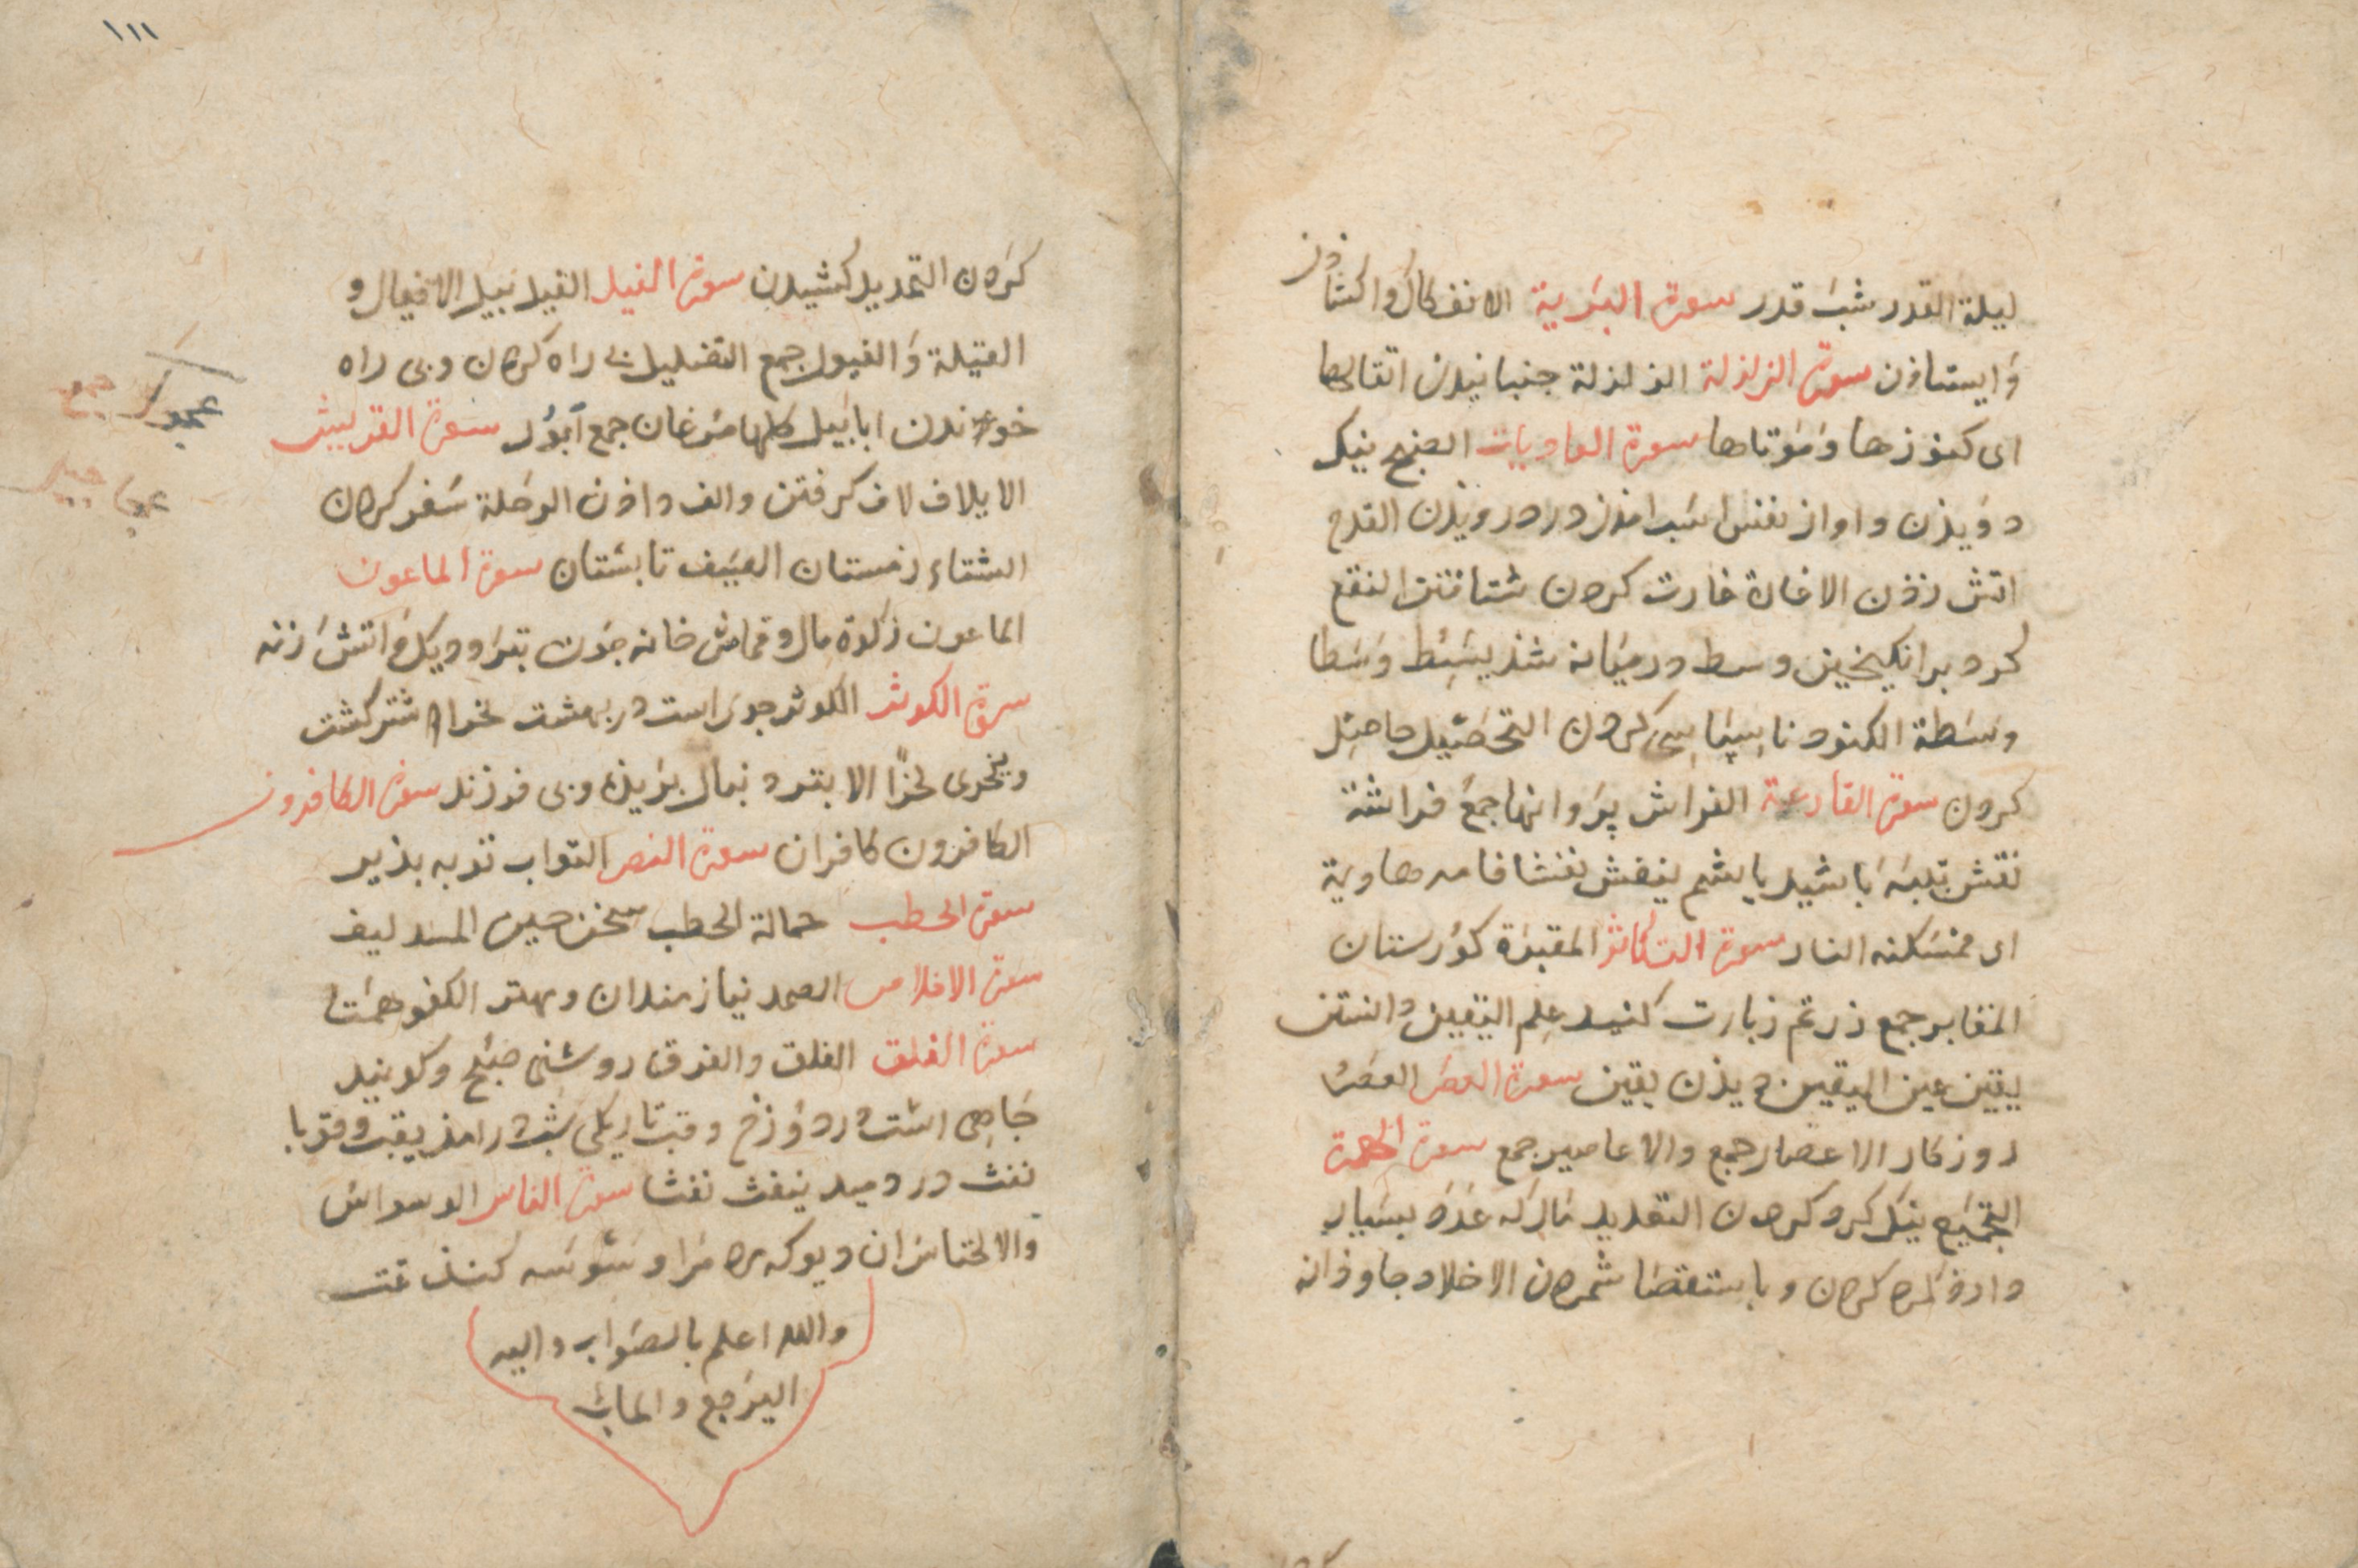 ليلة القدر شب قدر سورة البرية الانفكاك واكشاذن
وايستاذن سورة الزلزلة الزلزلة جنبانيدن اثقالها
اى كنوزها وموتاها سورة العاديات الضبح نيك
دويذن واواز نفس اسب در دويذن القدح
اتش زذن الاغارة غارت كردن شتافتن النقع
كرد برانكيختن وسط درميانه شذ يسط وسطا
وسطة الكنود ناسپاسى كردن التحصيل حاصل
كردن سورة القارعة الفراش پروانها جمع فراشة
نفش پنبه يا پشم ينفش نفشا فامه هاوية
اى مسكنه النار سورة التكاثر المقبرة كورستان
المقابر جمع زرتم زيارت كنيد علم اليقين دانستن
يقين عين اليقين ديذن يقين سورة العصر العصر
روزكار الاعصار جمع والاعاصير جمع سورة الهمزة
التجميع نيك كرد كردن التعديد مال كه عدد بسيار
دارد كردن وباستقصا شمردن الاخلاد جاوذانه
١١١
كردن التمديد كشيدن سورة الفيل الفيل پيل الافيال و
الفيلة والفيول جمع التضليل بى راه كردن وبى راه
خواندن ابابيل كلها مرغان جمع ابول سورة القريش
الايلاف لاف كرفتن والف داذن الرحلة سفر كردن
الشتاء زمستان الصيف تابستان سورة الماعون
الماعون زكوة مال وقماش خانه چون تبر وديك واتش زنه
سورة الكوثر الكوثر جوى است در بهشت نحر اشتر كشت
وينحرى نحرا الابتر دنبال بريذه وبى فرزند سورة الكافرون
الكافرون كافران سورة النصر التواب توبه بذير
سورة الحطب حمالة الحطب سخن چين المسد ليف
سورة الاخلاص الصمد نياز مندان ومهتر الكفو همتا
سورة الفلق الفلق والفرق روشنى صبح وكوينيد
چاهى است در دوزخ وقب تاريكى شب درامذ يقب وقوبا
نفث در دميد ينفث نفثا سورة الناس الوسواس
والاختاس ان ديو كه مرا وسوسه كنذ تمت
والله اعلم بالصواب واليه
المرجع والماب
عجول جمع